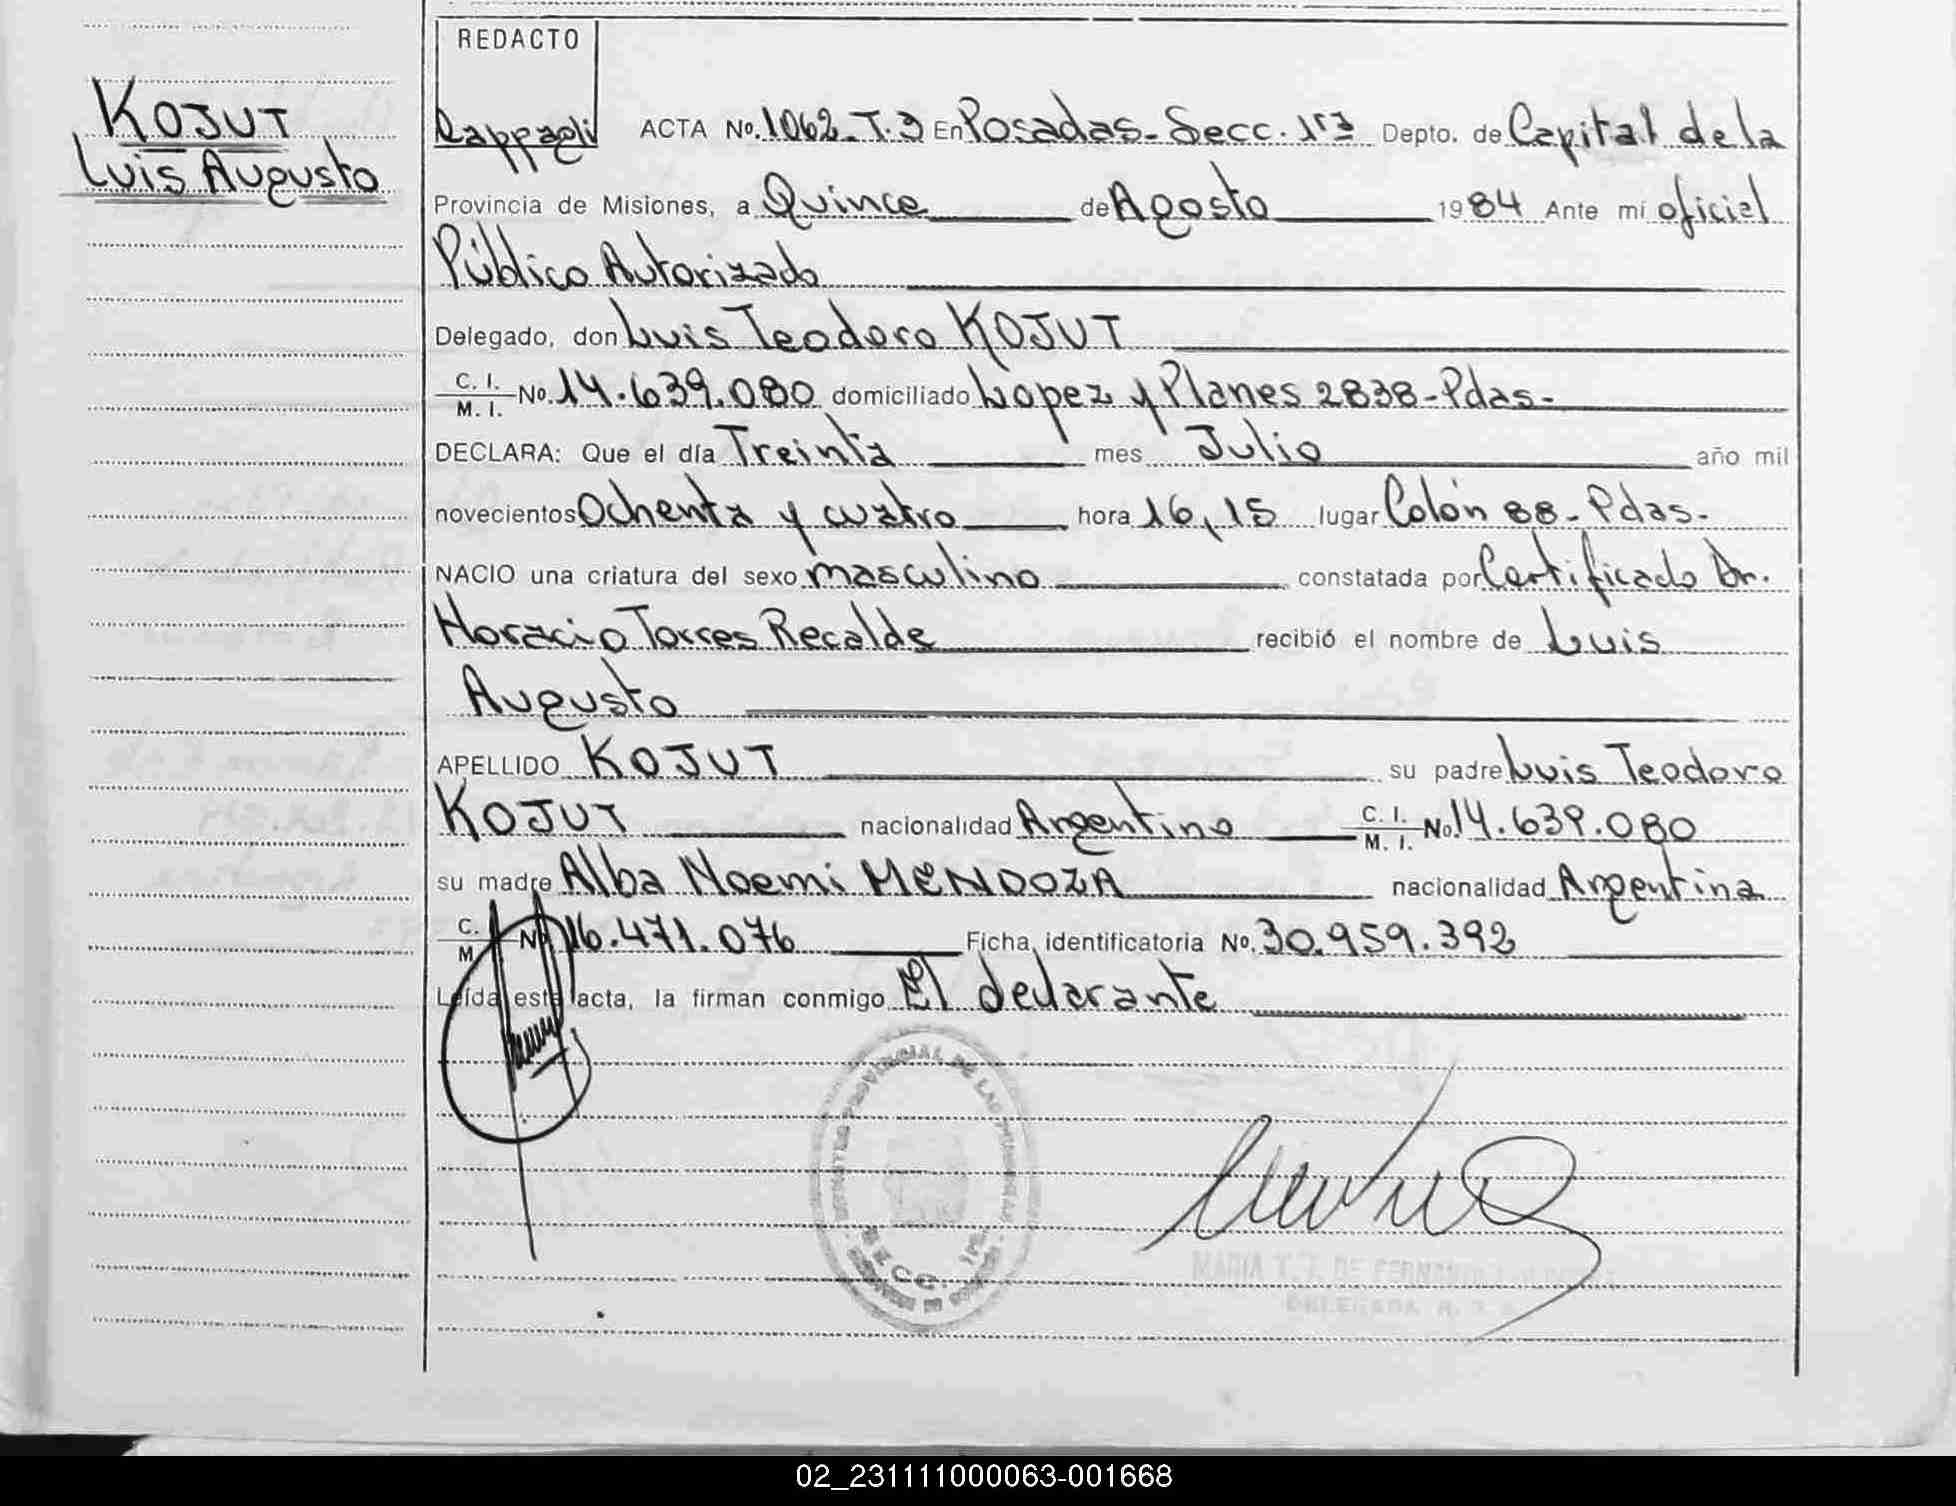 KOJUT
Luis Augusto
REDACTO
Rappaoli ACTA No. 1062-T.3 En Posadas-Secc. 1ra Depto. de Capital de la
Provincia de Misiones, a Quince de Agosto 1984 Ante mi oficial
Público Autorizado
Delegado, don Luis Teodoro KOJUT
C. I. M. I. No. 14.639.080 domiciliado Lopez y Planes 2838-Pdas-
DECLARA: Que el día Treinta mes Julio año mil
novecientos Ochenta y cuatro hora 16,15 lugar Colón 88-Pdas-
NACIO una criatura del sexo masculino constatada por Certificado Dr.
Horacio Torres Recalde recibió el nombre de Luis
Augusto
APELLIDO KOJUT su padre Luis Teodoro
KOJUT nacionalidad Argentino C. I. M. I. No. 14.639.080
su madre Alba Noemi MENDOZA nacionalidad Argentina
C. M No 16.471.076 Ficha identificatoria No. 30.959.392
Leída esta acta, la firman conmigo El declarante
PROVINCIAL DE LAS
SECC. 1ra
MARIA T. J. DE
DELEGADA R.
02_231111000063-001668